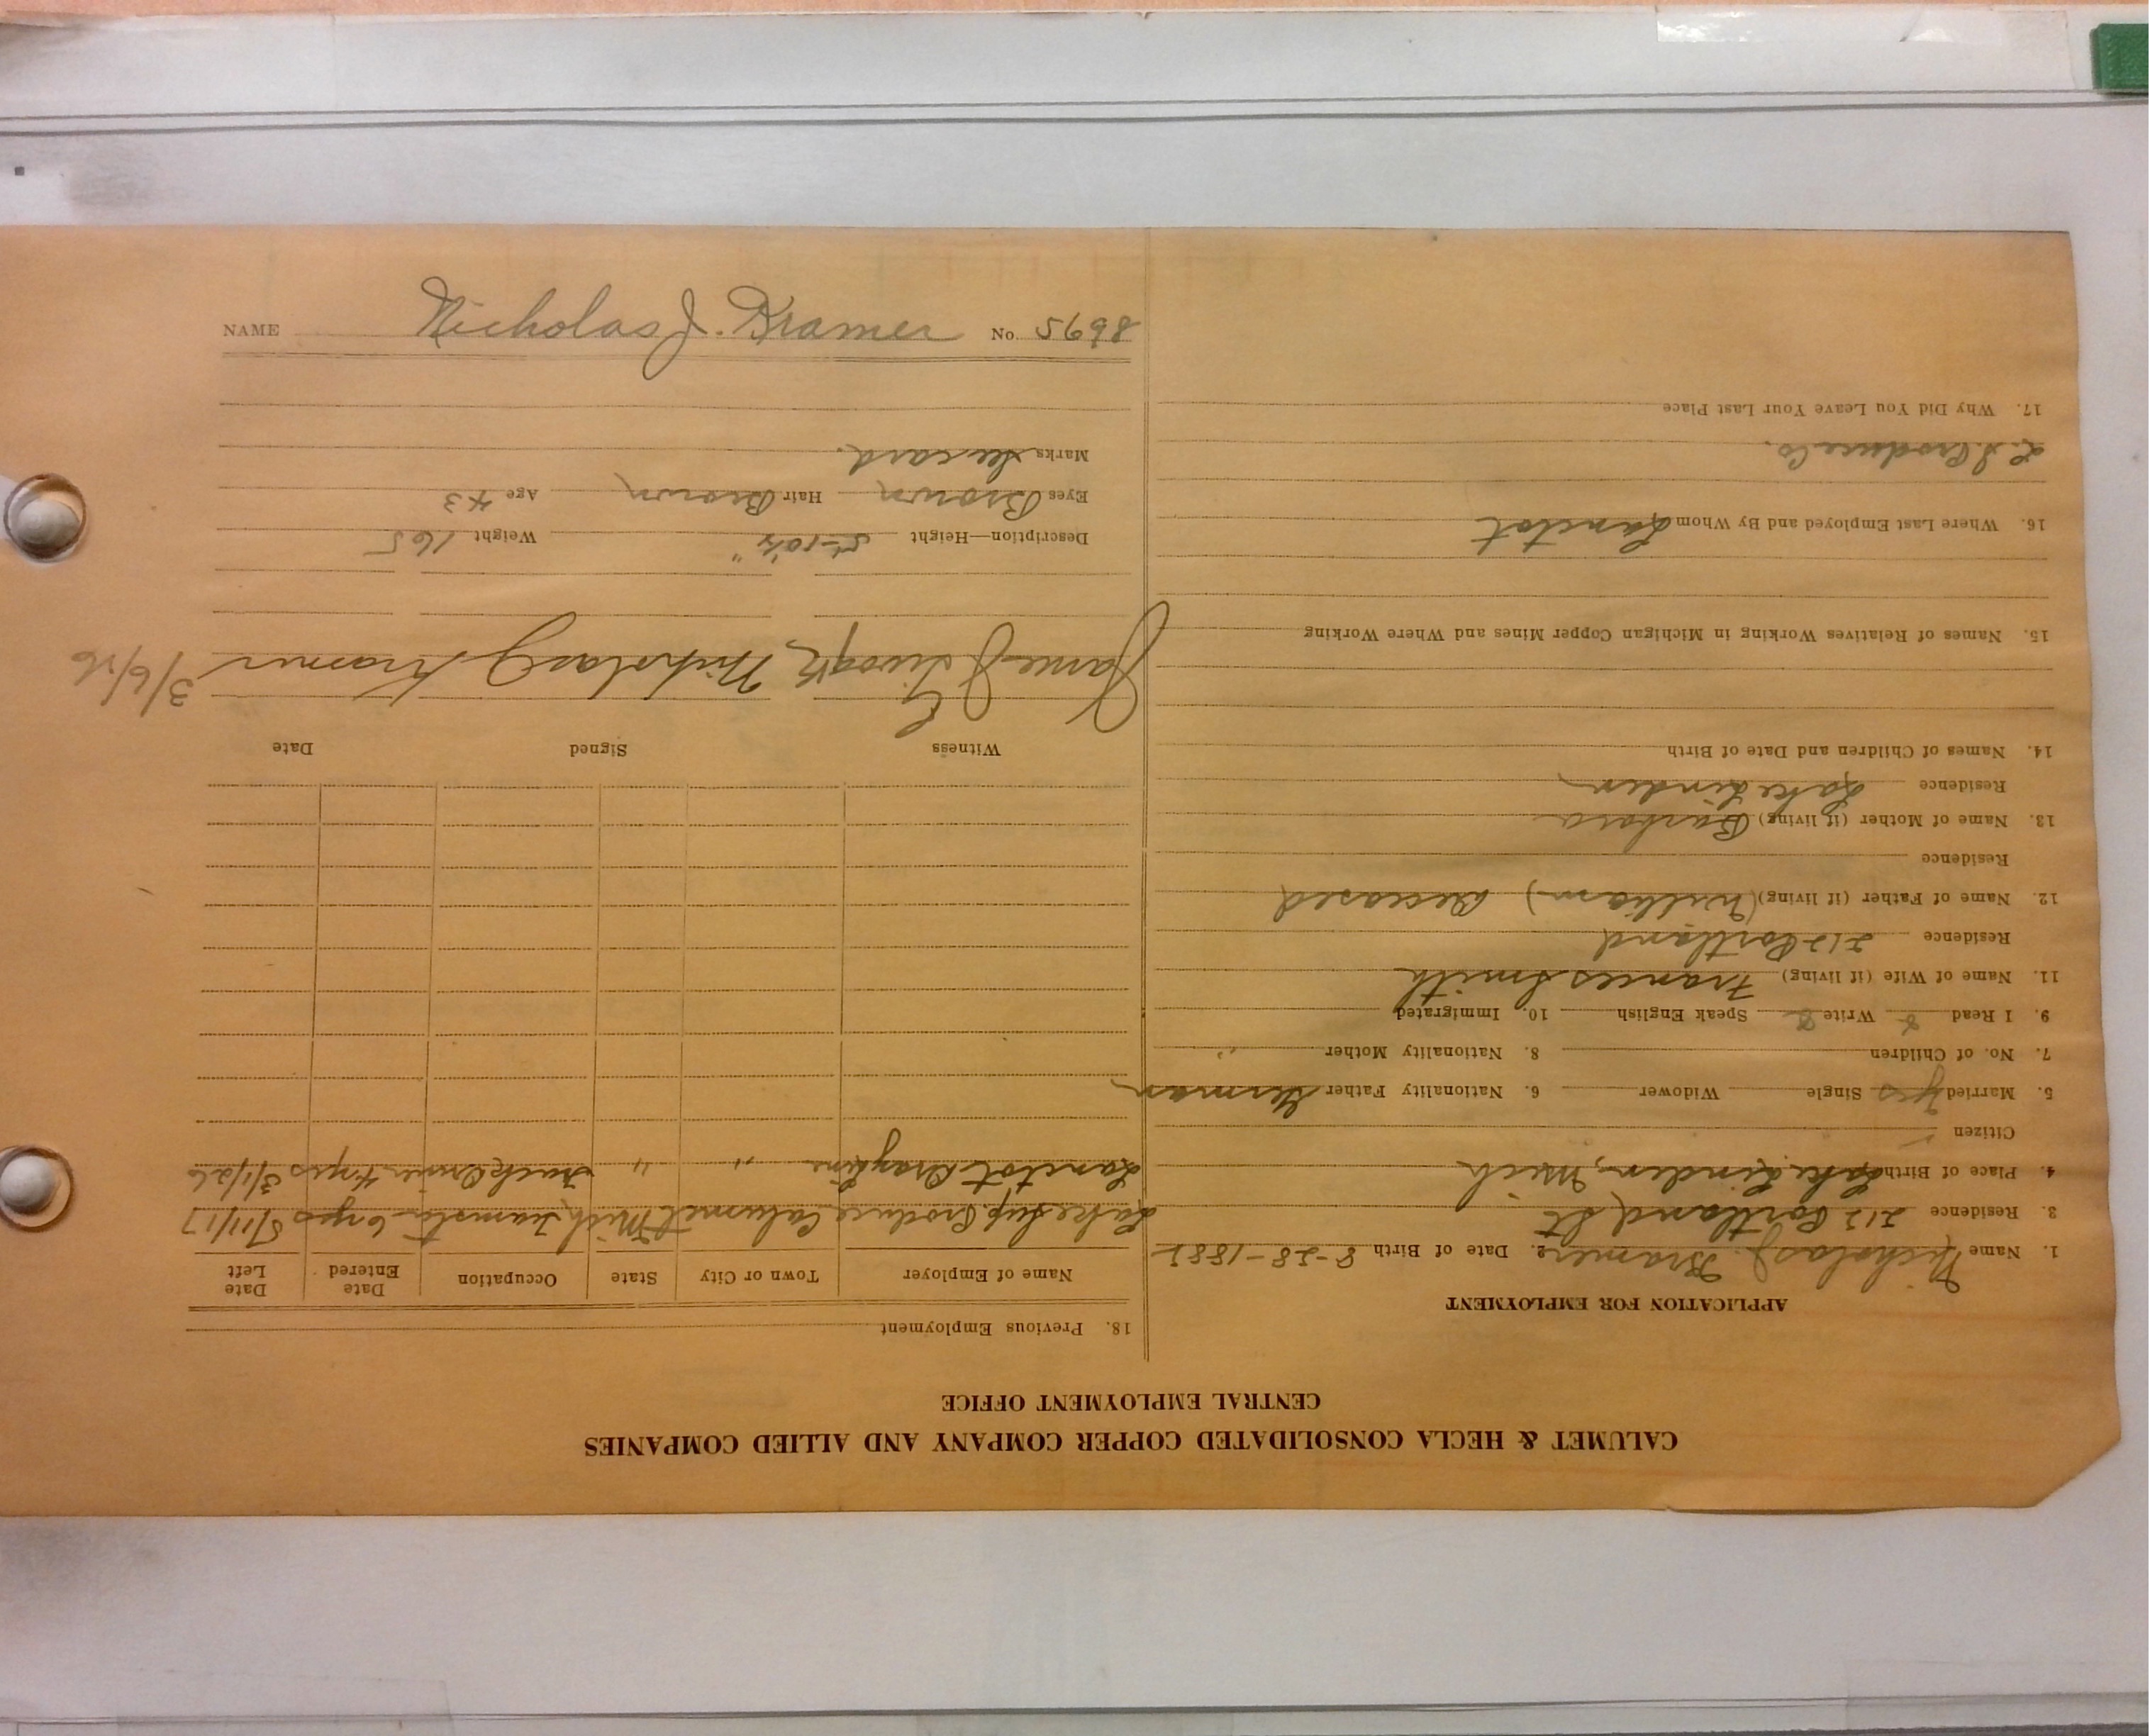 CALUMET & HECLA CONSOLIDATED COPPER COMPANY AND ALLIED COMPANIES
CENTRAL EMPLOYMENT OFFICE
APPLICATION FOR EMPLOYMENT
1. Name Nicholas J. Kramer 2. Date of Birth 8-28-1882
3. Residence 212 Portland St
4. Place of Birth Lake Linden, Mich
Citizen
5. Married yes Single Widower 6. Nationality Father German
7. No. of Children 8. Nationality Mother "
9. I Read & Write & Speak English 10. Immigrated
11. Name of Wife (if living) Frances Smith
Residence 212 Portland
12. Name of Father (if living) (William) Deceased
Residence
13. Name of Mother (if living) Barbara
Residence Lake Linden
14. Names of Children and Date of Birth
15. Names of Relatives Working in Michigan Copper Mines and Where Working
16. Where Last Employed and By Whom Lanctot
L. S. Produce Co.
17. Why Did You Leave Your Last Place
18. Previous Employment
Name of Employer Town or City State Occupation Date Entered Date Left
Lake Sup Produce Calumet Mich Teamster 6 yrs 5/11/17
Lanctot Dray Line " " Truck Driver 4 yrs 3/1/26
Witness Signed Date
James J Nicholas J Kramer 3/6/26
Description—Height 5'-10½" Weight 165
Eyes Brown Hair Brown Age 43
Marks See card.
NAME Nicholas J. Kramer No. 5698